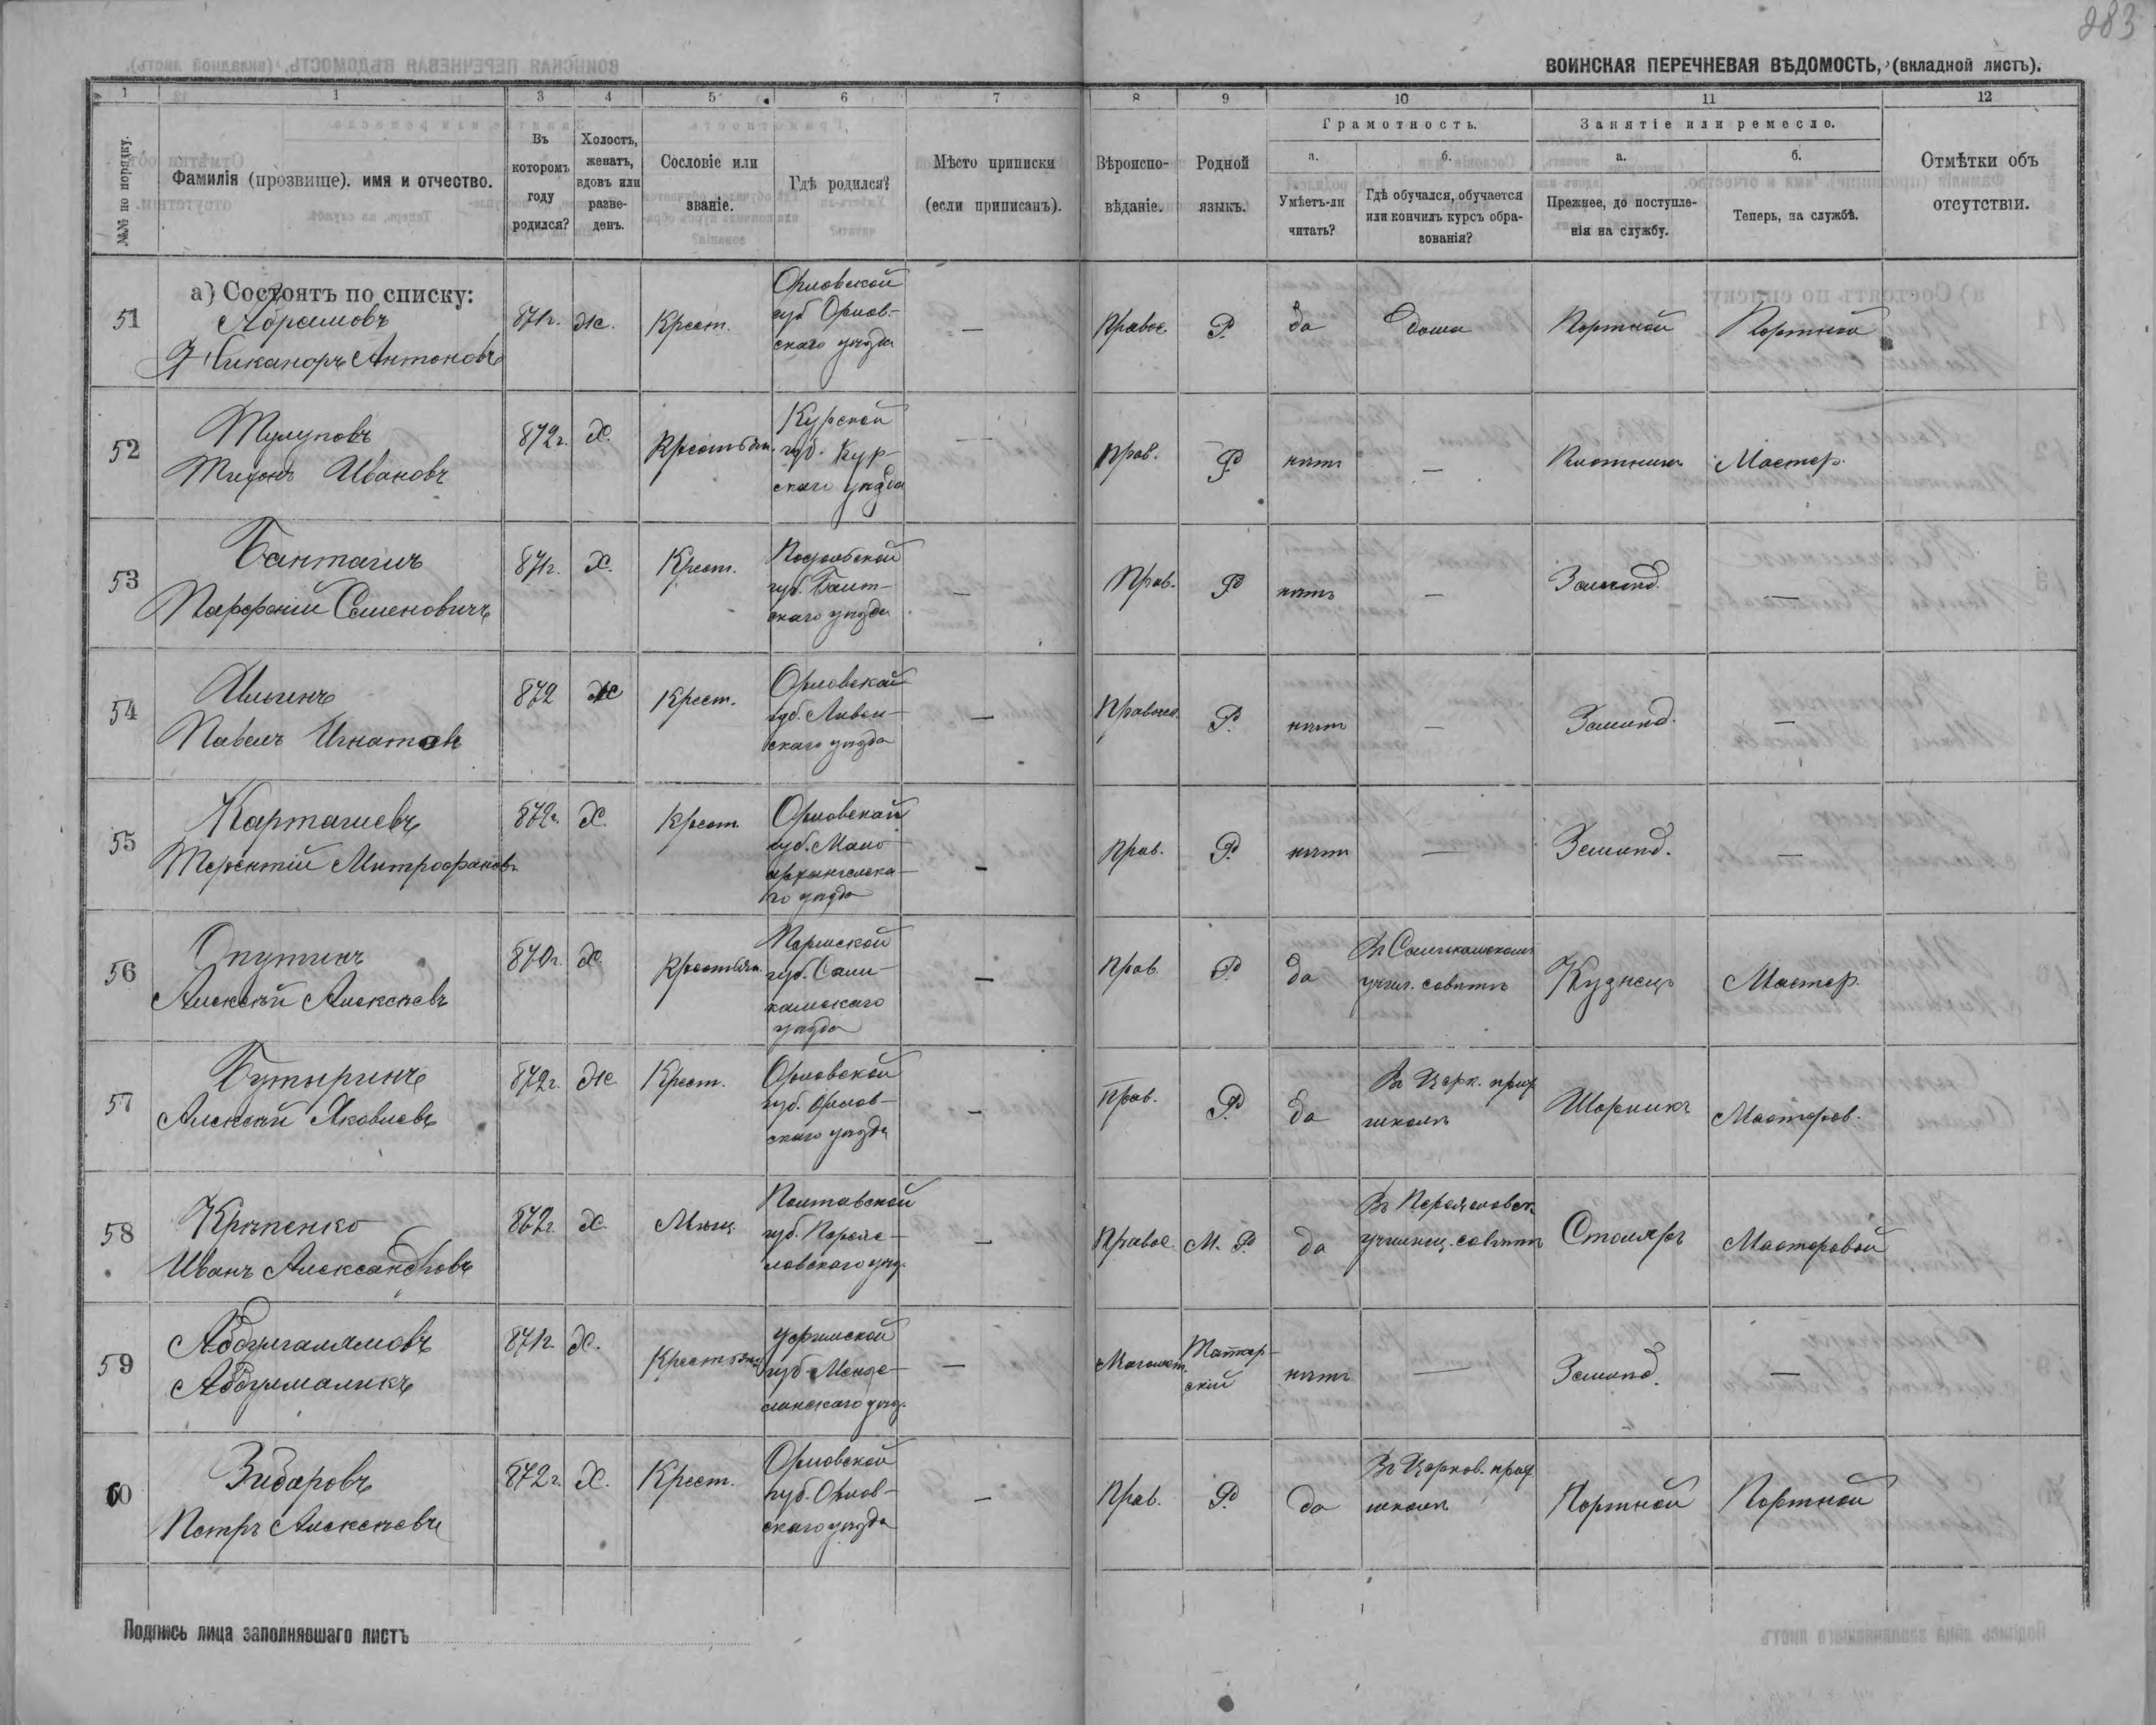 283
ВОИНСКАЯ ПЕРЕЧНЕВАЯ ВѢДОМОСТЬ, (вкладной листъ).
1 1 3 4 5 6 7 8 9 10 11 12
№№ по порядку.
Фамилія (прозвище). имя и отчество.
Въ
которомъ
году
родился?
Холостъ,
женатъ,
вдовъ или
разве-
денъ.
Сословіе или
званіе.
Гдѣ родился?
Мѣсто приписки
(если приписанъ).
Вѣроиспо-
вѣданіе.
Родной
языкъ.
Грамотность.
а.
Умѣетъ-ли
читать?
б.
Гдѣ обучался, обучается
или кончилъ курсъ обра-
зованія?
Занятіе или ремесло.
а.
Прежнее, до поступле-
нія на службу.
б.
Теперь, на службѣ.
Отмѣтки объ
отсутствіи.
а) Состоятъ по списку:
51
Абрамовъ
Никаноръ Антоновъ
871г.
Ж.
Крест.
Орловской
губ Орлов-
скаго уѣзда
—
Правос.
Р.
да
дома
Портной
Портной
52
Тулуповъ
Тихонъ Ивановъ
872г.
Х.
Крестьян.
Курской
губ. Кур-
скаго уѣзда
—
Прав.
Р
нѣтъ
—
Плотникъ
Мастер.
53
Парфеній Семеновичъ
871г.
Х.
Крест.
Подольской
губ. Балт-
скаго уѣзда
—
Прав.
Р
нѣтъ
—
Землед.
—
54
Илюгинъ
Павелъ Игнатовъ
872
Ж
Крест.
Орловской
губ. Ливен-
скаго уѣзда
—
Правосл.
Р.
нѣтъ
—
Землед.
—
55
Терентій Митрофановъ
872г.
Х.
Крест.
Орловской
губ. Мало-
архангельска-
го уѣзда
—
Прав.
Р.
нѣтъ
—
Землед.
—
56
Опутинъ
Алексѣй Алексѣевъ
870г.
Х.
Крестьян.
Пермской
губ. Соли-
камскаго
уѣзда
—
Прав.
Р.
да
Въ Соликамскомъ
Кузнецъ
Мастер.
57
Бутыринъ
Алексѣй Яковлевъ
872г.
Ж
Крест.
Орловской
губ. Орлов-
скаго уѣзда
—
Прав.
Р.
да
Въ Церк. прих
школѣ
Шорникъ
Мастеров.
58
Крѣпенко
Иванъ Александровъ
872г.
Х.
Мѣщ.
Полтавской
губ. Перояс-
ловскаго уѣз.
—
Правос.
М. Р.
да
Столяръ
Мастеровой
59
Абдулгалямовъ
Абдулмаликъ
871г.
Х.
Крестьян
Уфимской
губ Мензе-
линскаго уѣз.
—
Магомет.
Татар-
скій
нѣтъ
—
Землед.
—
60
Зибаровъ
Петръ Алексѣевъ
872г.
Х.
Крест.
Орловской
губ. Орлов-
скаго уѣзда
—
Прав.
Р.
да
Въ Церков. прих
школѣ
Портной
Портной
Подпись лица заполнявшаго листъ